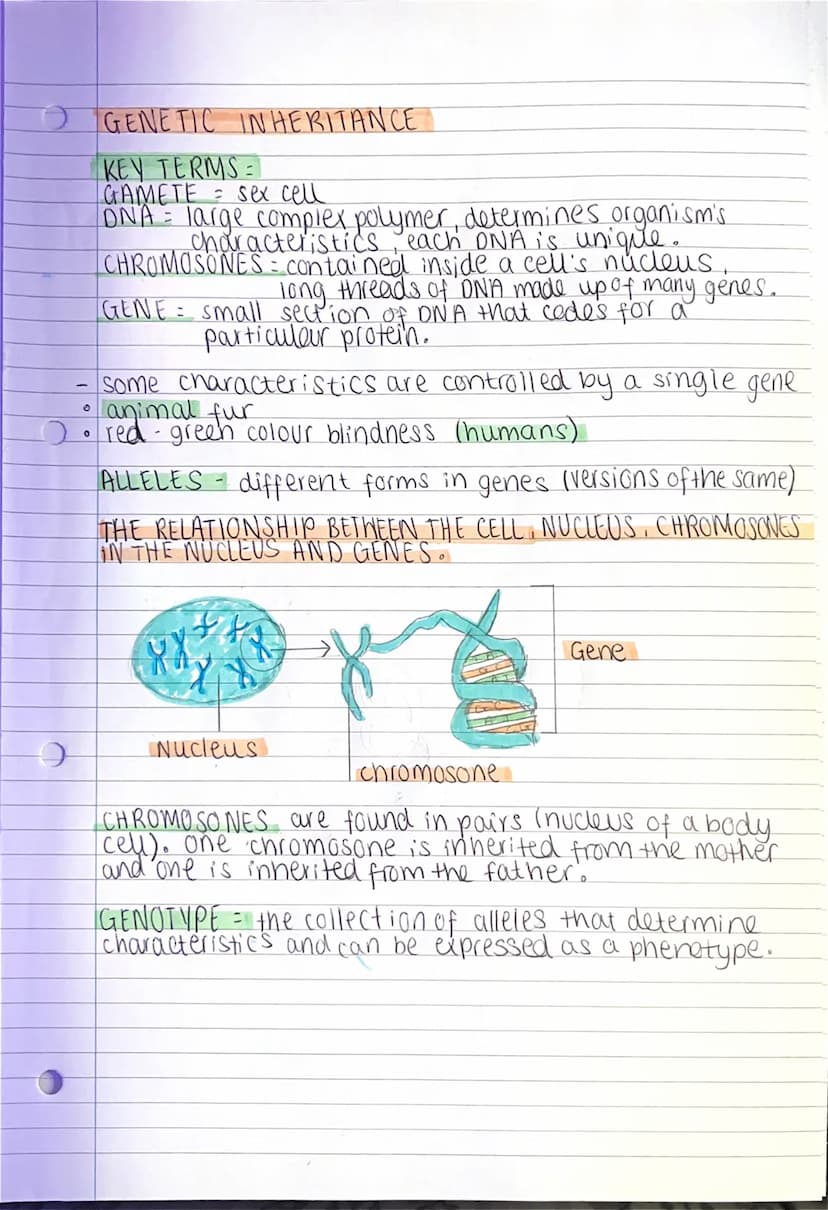 GENETIC INHERITANCE
KEY TERMS =
GAMETE = sex cell
DNA = large complex polymer, determines organism's
characteristics, each DNA is unique.
CHROMOSONES = contained inside a cell's nucleus,
long threads of DNA made up of many genes.
GENE = small section of DNA that codes for a
particular protein.
- some characteristics are controlled by a single gene
• animal fur
• red-green colour blindness (humans)
ALLELES - different forms in genes (versions of the same)
THE RELATIONSHIP BETWEEN THE CELL, NUCLEUS, CHROMOSONES
IN THE NUCLEUS AND GENES.
Gene
Nucleus
chromosone
CHROMOSONES are found in pairs (nucleus of a body
cell). One chromosone is inherited from the mother
and one is inherited from the father.
GENOTYPE = the collection of alleles that determine
characteristics and can be expressed as a phenotype.